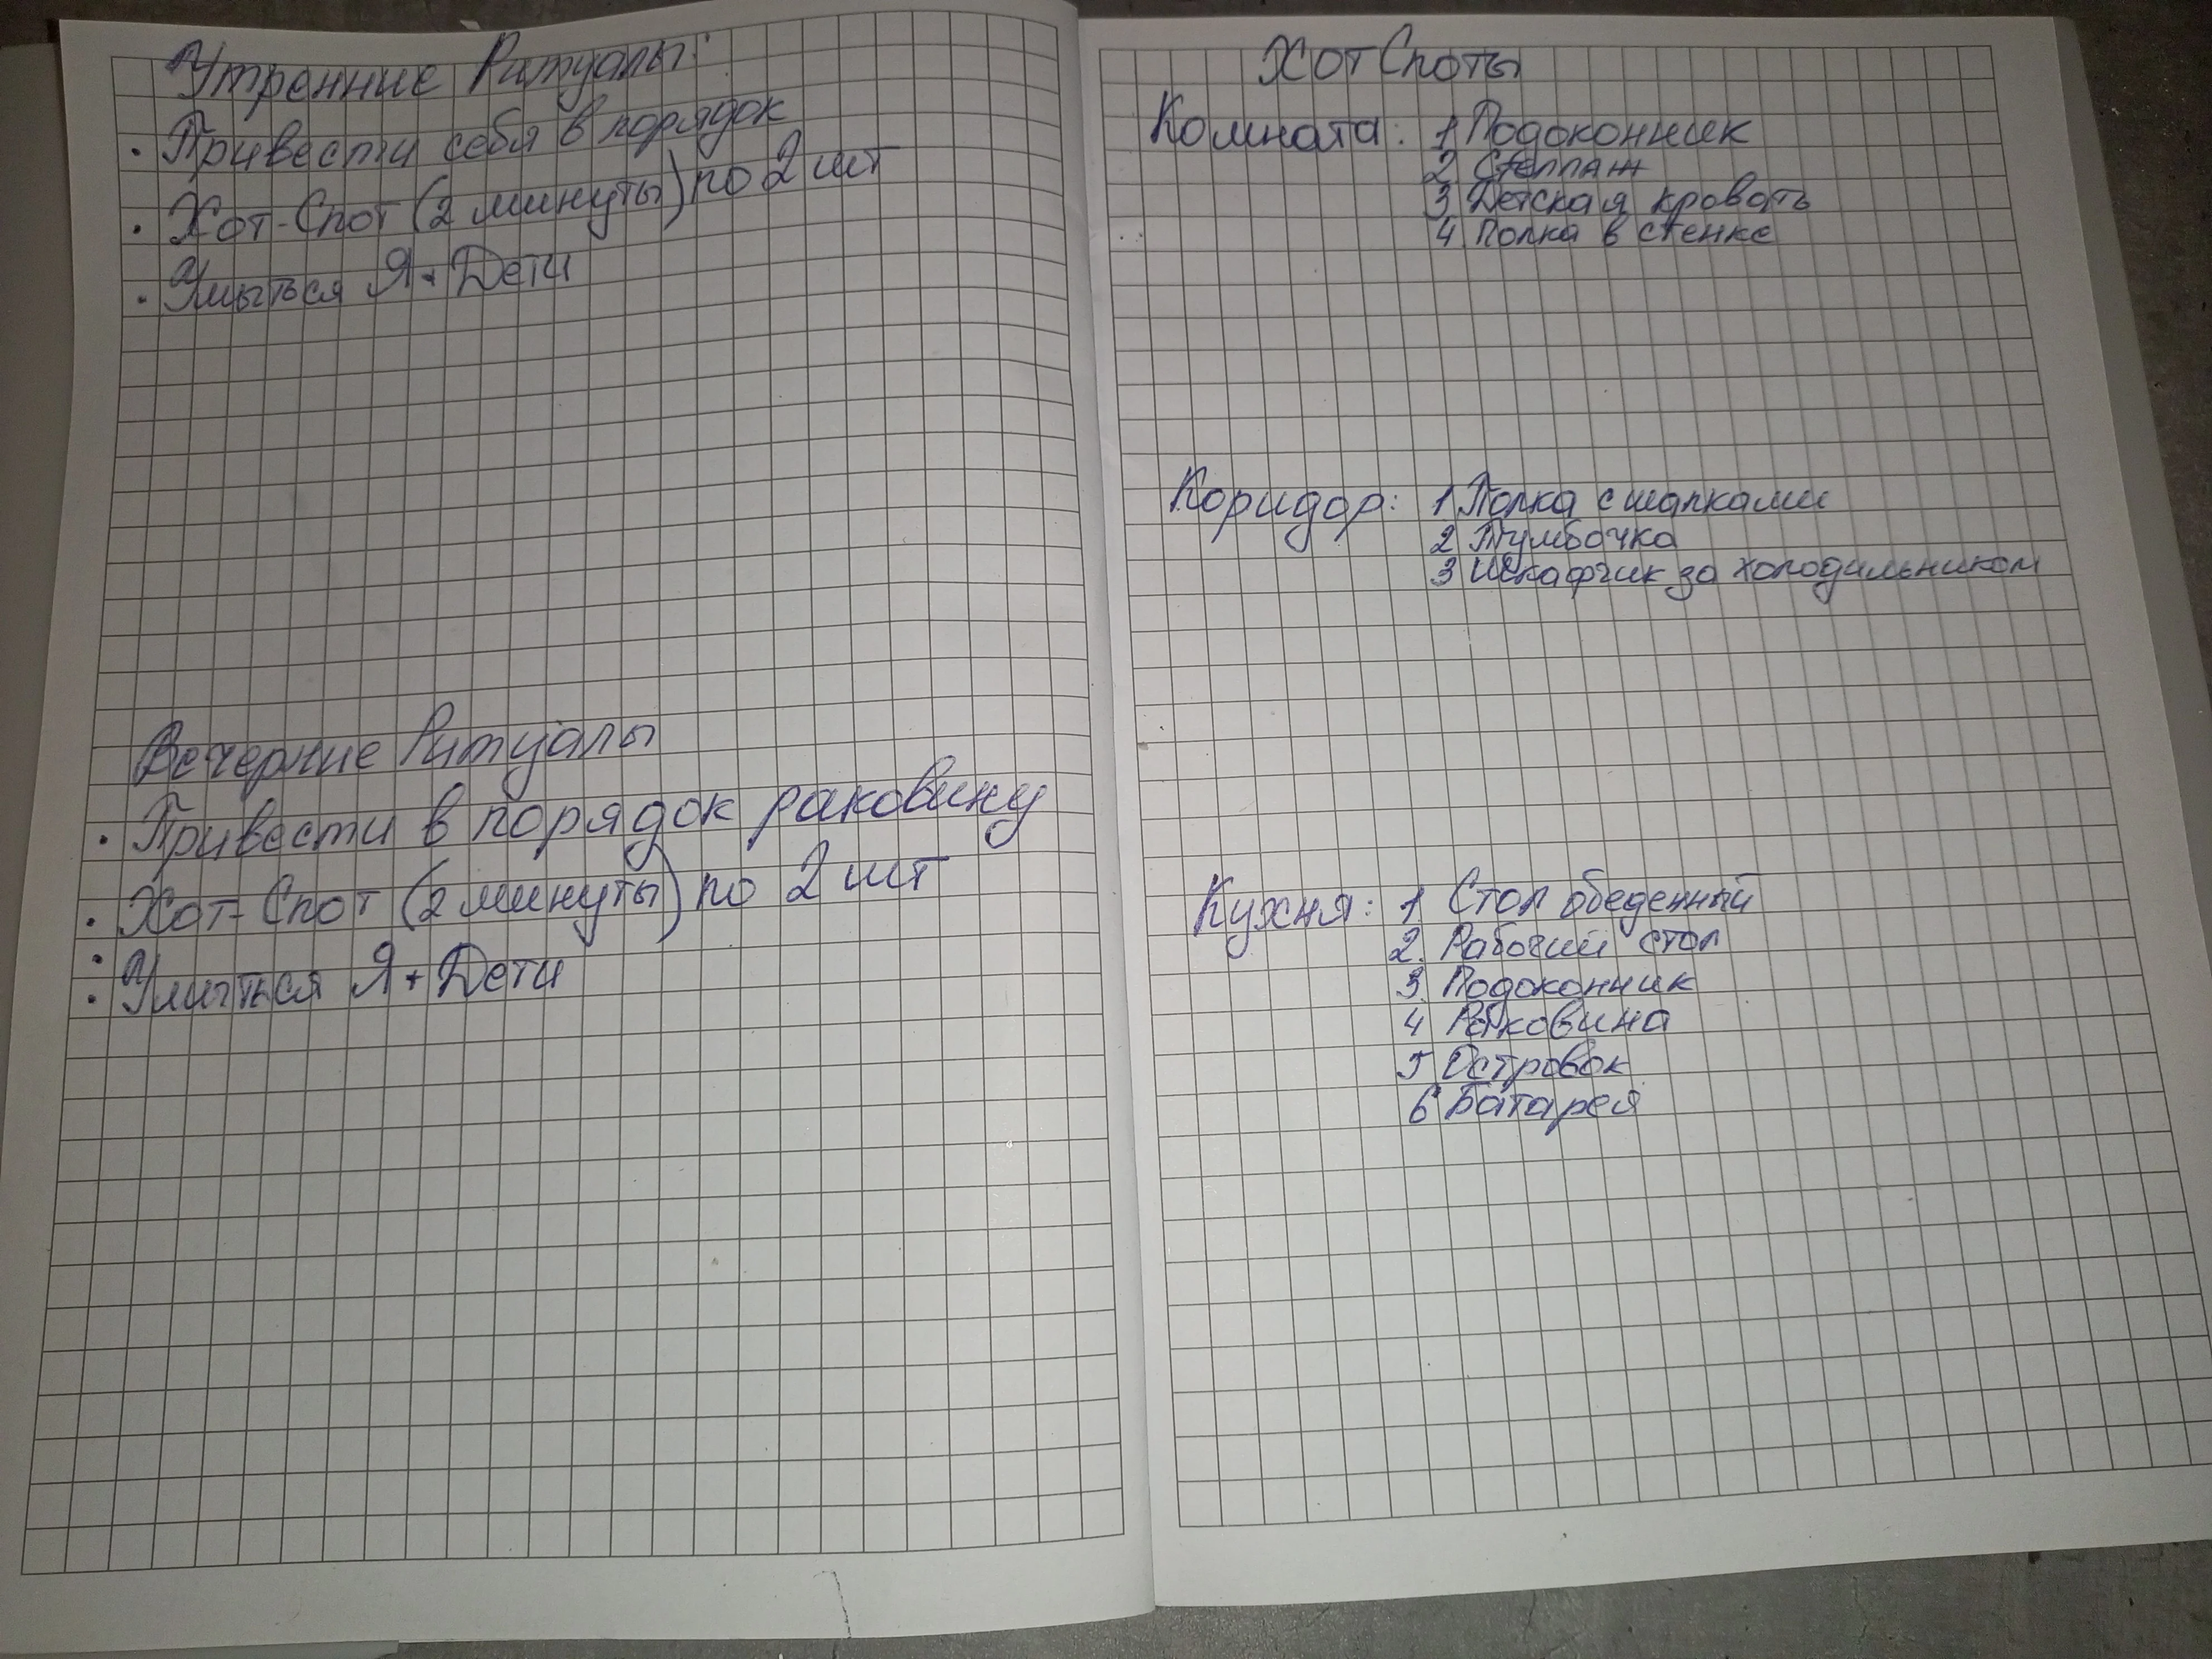 Утренние Ритуалы:
· Привести себя в порядок
· Хот-Спот (2 минуты) по 2 шт
· Умыться Я + Дети
Вечерние Ритуалы
· Привести в порядок раковину
· Хот-Спот (2 минуты) по 2 шт
· Умыться Я + Дети
Хот Споты
Комната: 1 Подоконник
2 Стеллаж
3 Детская кровать
4 Полка в стенке
Коридор: 1 Полка с шапками
2 Тумбочка
3 Шкафчик за холодильником
Кухня: 1 Стол обеденный
2. Рабочий стол
3. Подоконник
4 Раковина
5 Островок
6 Батарея